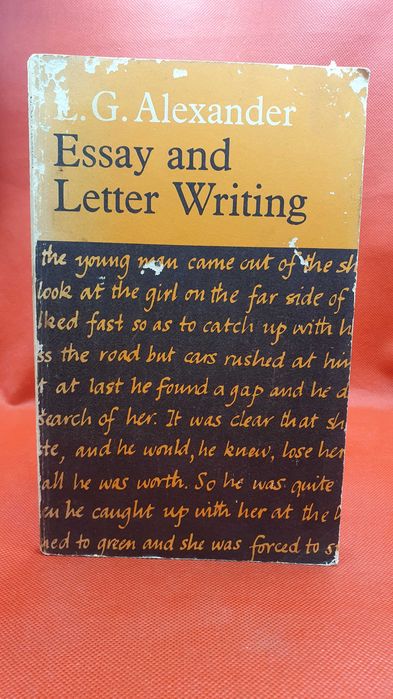 L. G. Alexander
Essay and
Letter Writing
the young man came out of the sh
look at the girl on the far side of
lked fast so as to catch up with h
ss the road but cars rushed at him
t at last he found a gap and he d
search of her. It was clear that sh
te, and he would, he knew, lose her
all he was worth. So he was quite
en he caught up with her at the
ned to green and she was forced to s